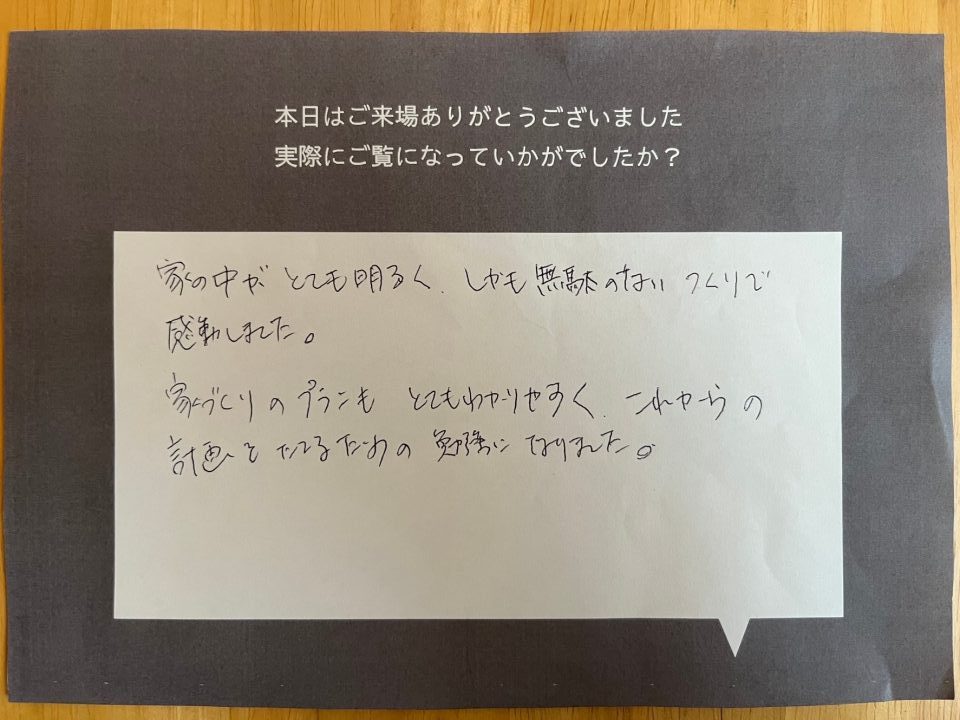 本日はご来場ありがとうございました
実際にご覧になっていかがでしたか？
家の中が とても明るく、しかも無駄のない つくりで
感動しました。
家づくりのプランも とてもわかりやすく、これからの
計画をたてるための 勉強になりました。